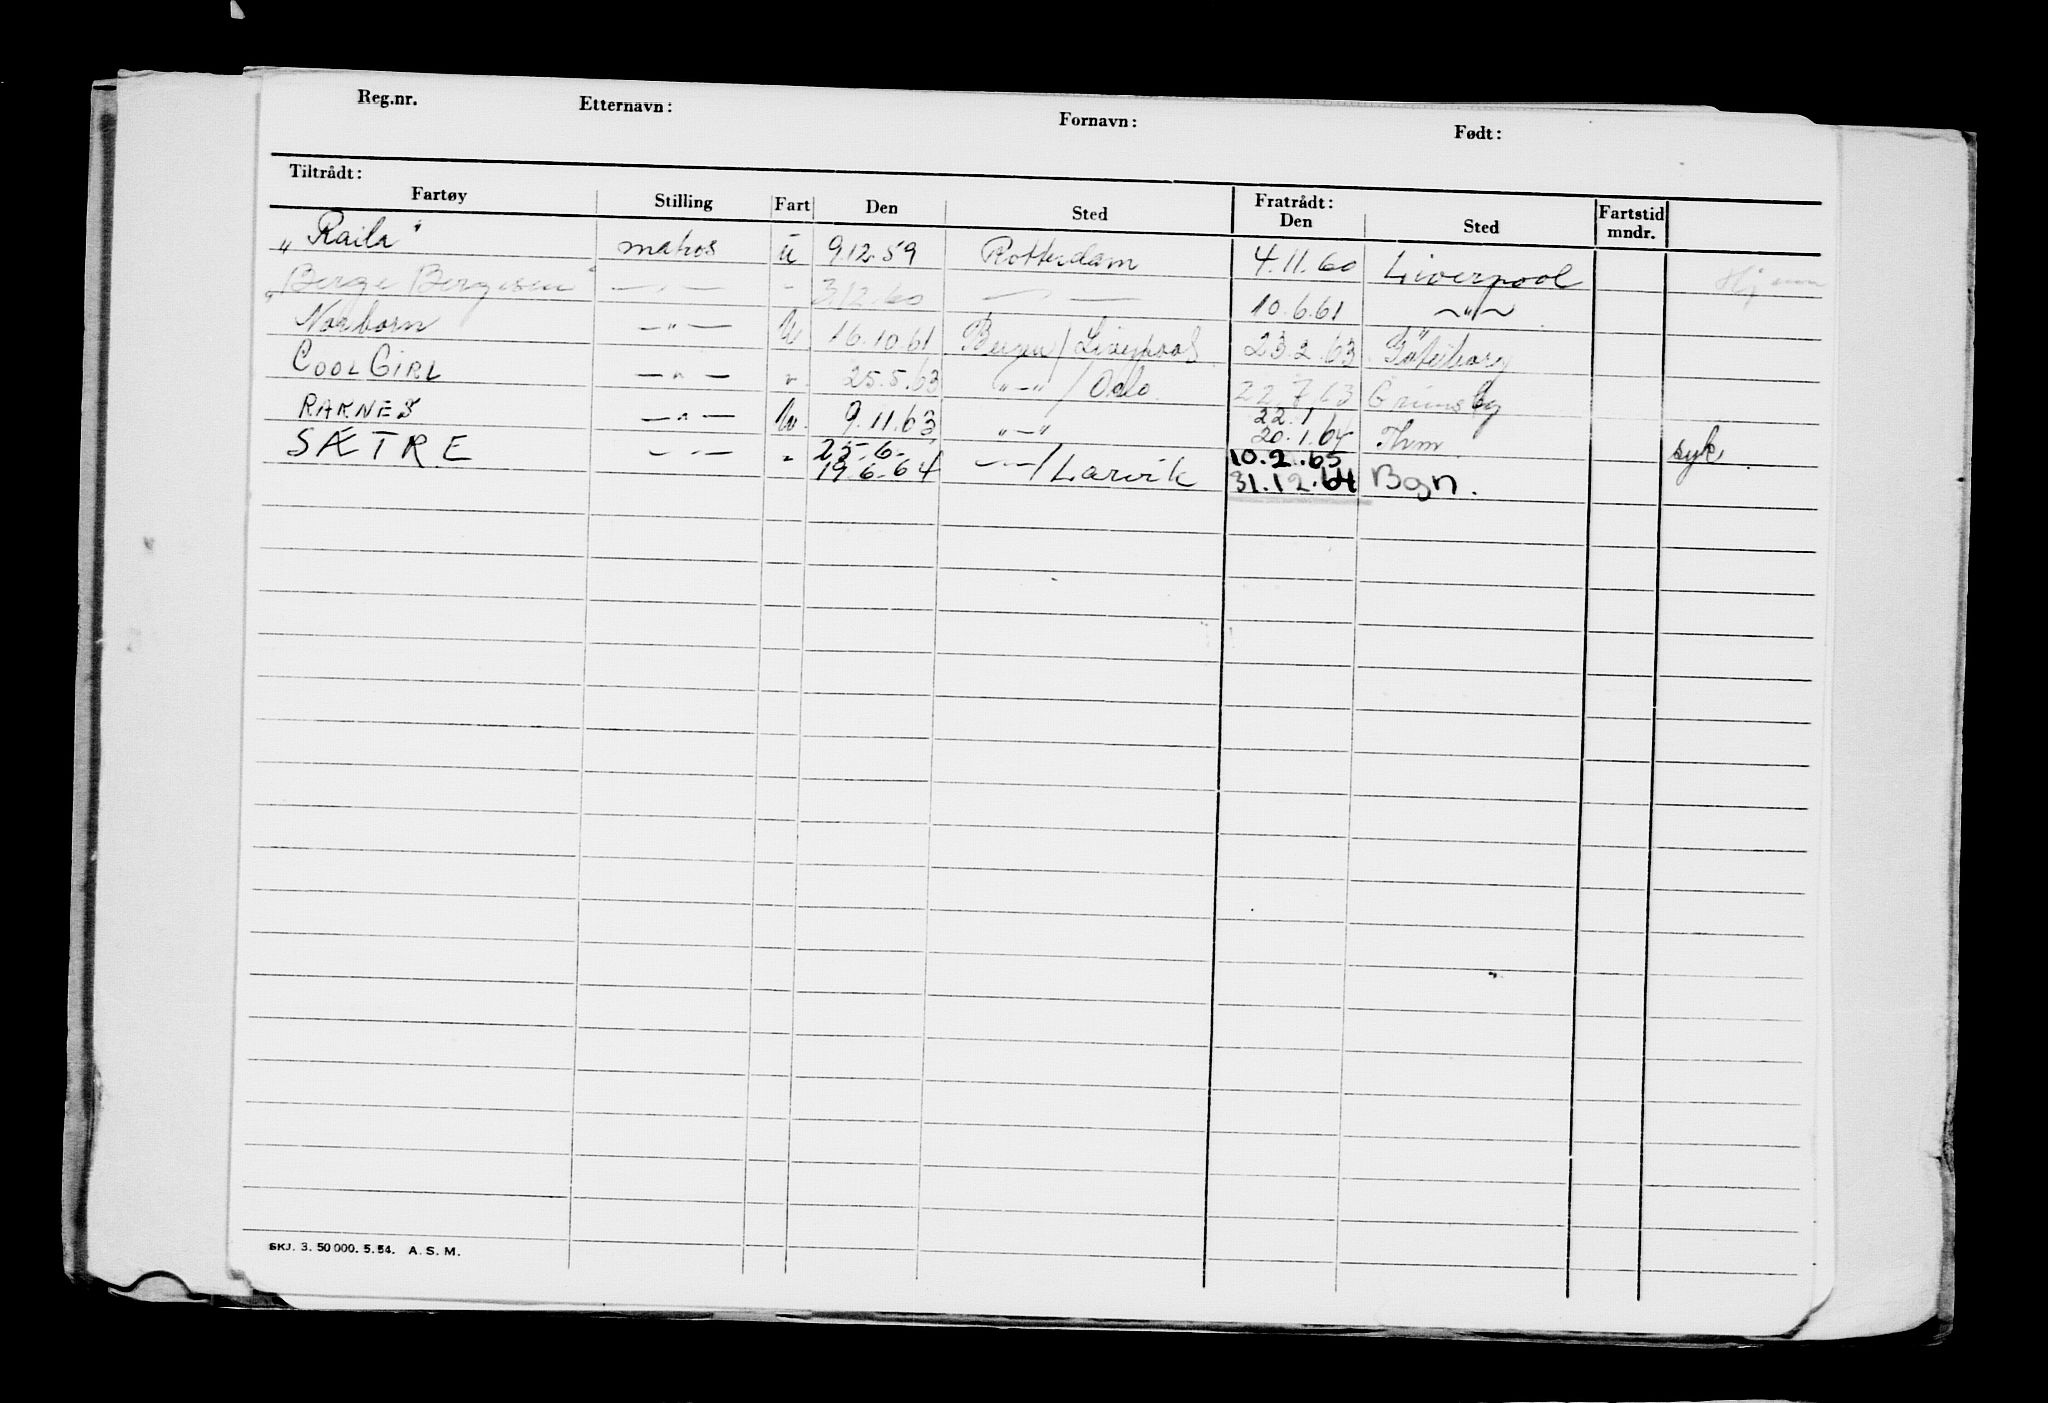 Reg.nr. Etternavn: Fornavn: Født:
Tiltrådt: Fratrådt:
Fartøy Stilling Fart Den Sted Den Sted Fartstid mndr.
"Raila" matros u 9.12.59 Rotterdam 4.11.60 Liverpool
"Berge Bergesen" —"— - 3.12.60 —"— 10.6.61 —"—
Norborn —"— U 16.10.61 Bergen/Liverpool 23.2.63 Göteborg
COOL GIRL —"— " 25.5.63 "—"/Oslo 22.7.63 Grimsby
RAKNES —"— U. 9.11.63 "—" 22.1 20.1.64 Thm syk
SÆTRE —"— " 25.6.- 19.6.64 —"—/Larvik 10.2.65 31.12.64 Bgn.
SKJ. 3. 50 000. 5. 54. A. S. M.